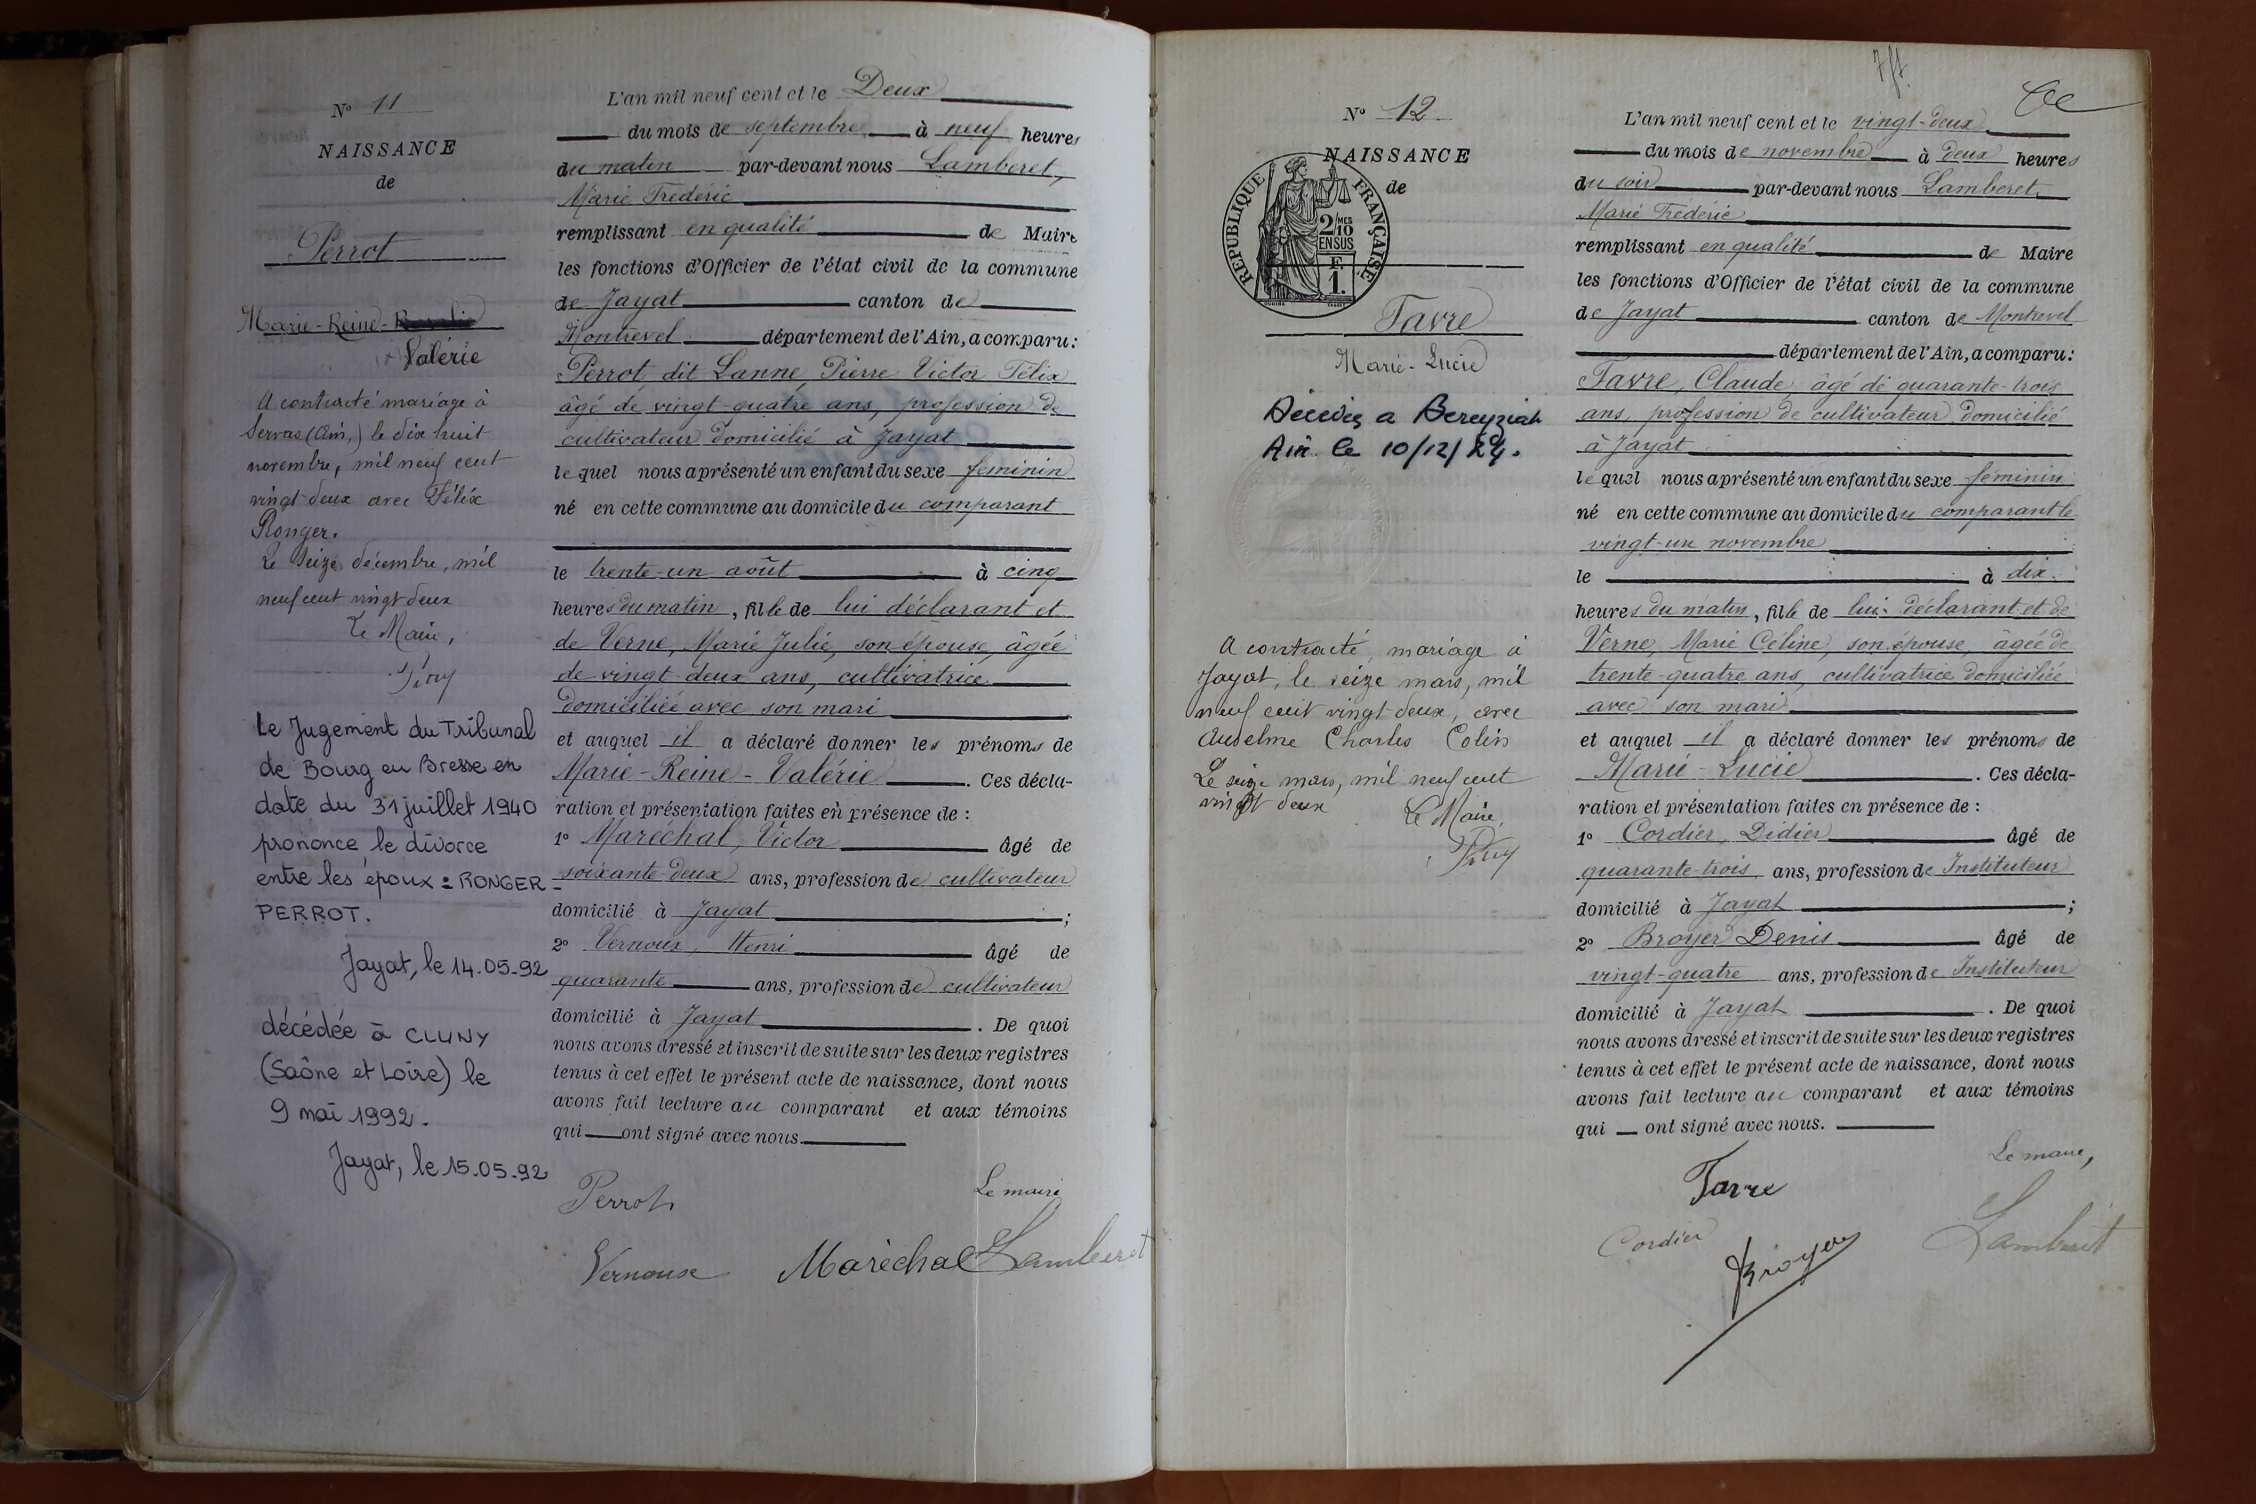 N° 11
NAISSANCE
de
Perrot
Marie-Reine-
Valérie
A contracté mariage à
Servas (Ain,) le dix huit
novembre, mil neuf cent
vingt-deux avec Félix
Ronger.
Le seize décembre, mil
neuf cent vingt deux
Le Maire,
Le Jugement du Tribunal
de Bourg en Bresse en
date du 31 juillet 1940
prononce le divorce
entre les époux = RONGER -
PERROT.
Jayat, le 14.05.92
décédée à CLUNY
(Saône et Loire) le
9 mai 1992.
Jayat, le 15.05.92
L'an mil neuf cent et le Deux
du mois de septembre à neuf heures
du matin par-devant nous Lamberet,
Marie Frédéric
remplissant en qualité de Maire
les fonctions d'Officier de l'état civil de la commune
de Jayat canton de
Montrevel département de l'Ain, a comparu:
Perrot dit Lanne, Pierre Victor Félix
âgé de vingt-quatre ans, profession de
cultivateur domicilié à Jayat
lequel nous a présenté un enfant du sexe féminin
né en cette commune au domicile du comparant
le trente-un août à cinq
heures du matin, fille de lui déclarant et
de Verne, Marie Julie, son épouse, âgée
de vingt-deux ans, cultivatrice
domiciliée avec son mari
et auquel il a déclaré donner les prénoms de
Marie-Reine-Valérie. Ces décla-
ration et présentation faites en présence de :
1° Maréchal, Victor âgé de
soixante-deux ans, profession de cultivateur
domicilié à Jayat ;
2° Vernoux, Henri âgé de
quarante ans, profession de cultivateur
domicilié à Jayat . De quoi
nous avons dressé et inscrit de suite sur les deux registres
tenus à cet effet le présent acte de naissance, dont nous
avons fait lecture au comparant et aux témoins
qui ont signé avec nous.
Perrot
Le maire
Vernoux Maréchal Lamberet
N° 12
NAISSANCE
de
RÉPUBLIQUE FRANÇAISE
2/10 MES
EN SUS
F.
1.
Favre
Marie-Lucie
Décédée a Bereyziat
Ain le 10/12/
A contracté mariage à
Jayat, le seize mars, mil
neuf cent vingt deux, avec
Anselme Charles Colin
Le seize mars, mil neuf cent
vingt deux Le Maire,
L'an mil neuf cent et le vingt-deux
du mois de novembre à deux heures
du soir par-devant nous Lamberet
Marie Frédéric
remplissant en qualité de Maire
les fonctions d'Officier de l'état civil de la commune
de Jayat canton de Montrevel
département de l'Ain, a comparu:
Favre, Claude, âgé de quarante-trois
ans, profession de cultivateur domicilié
à Jayat
lequel nous a présenté un enfant du sexe féminin
né en cette commune au domicile du comparant le
vingt-un novembre
le à dix
heures du matin, fille de lui déclarant et de
Verne, Marie Céline, son épouse, âgée de
trente-quatre ans, cultivatrice domiciliée
avec son mari
et auquel il a déclaré donner les prénoms de
Marie-Lucie . Ces décla-
ration et présentation faites en présence de :
1° Cordier, Didier âgé de
quarante-trois ans, profession de Instituteur
domicilié à Jayat ;
2° Broyer Denis âgé de
vingt-quatre ans, profession de Instituteur
domicilié à Jayat . De quoi
nous avons dressé et inscrit de suite sur les deux registres
tenus à cet effet le présent acte de naissance, dont nous
avons fait lecture au comparant et aux témoins
qui ont signé avec nous.
Favre
Le maire,
Cordier
Broyer
Lamberet